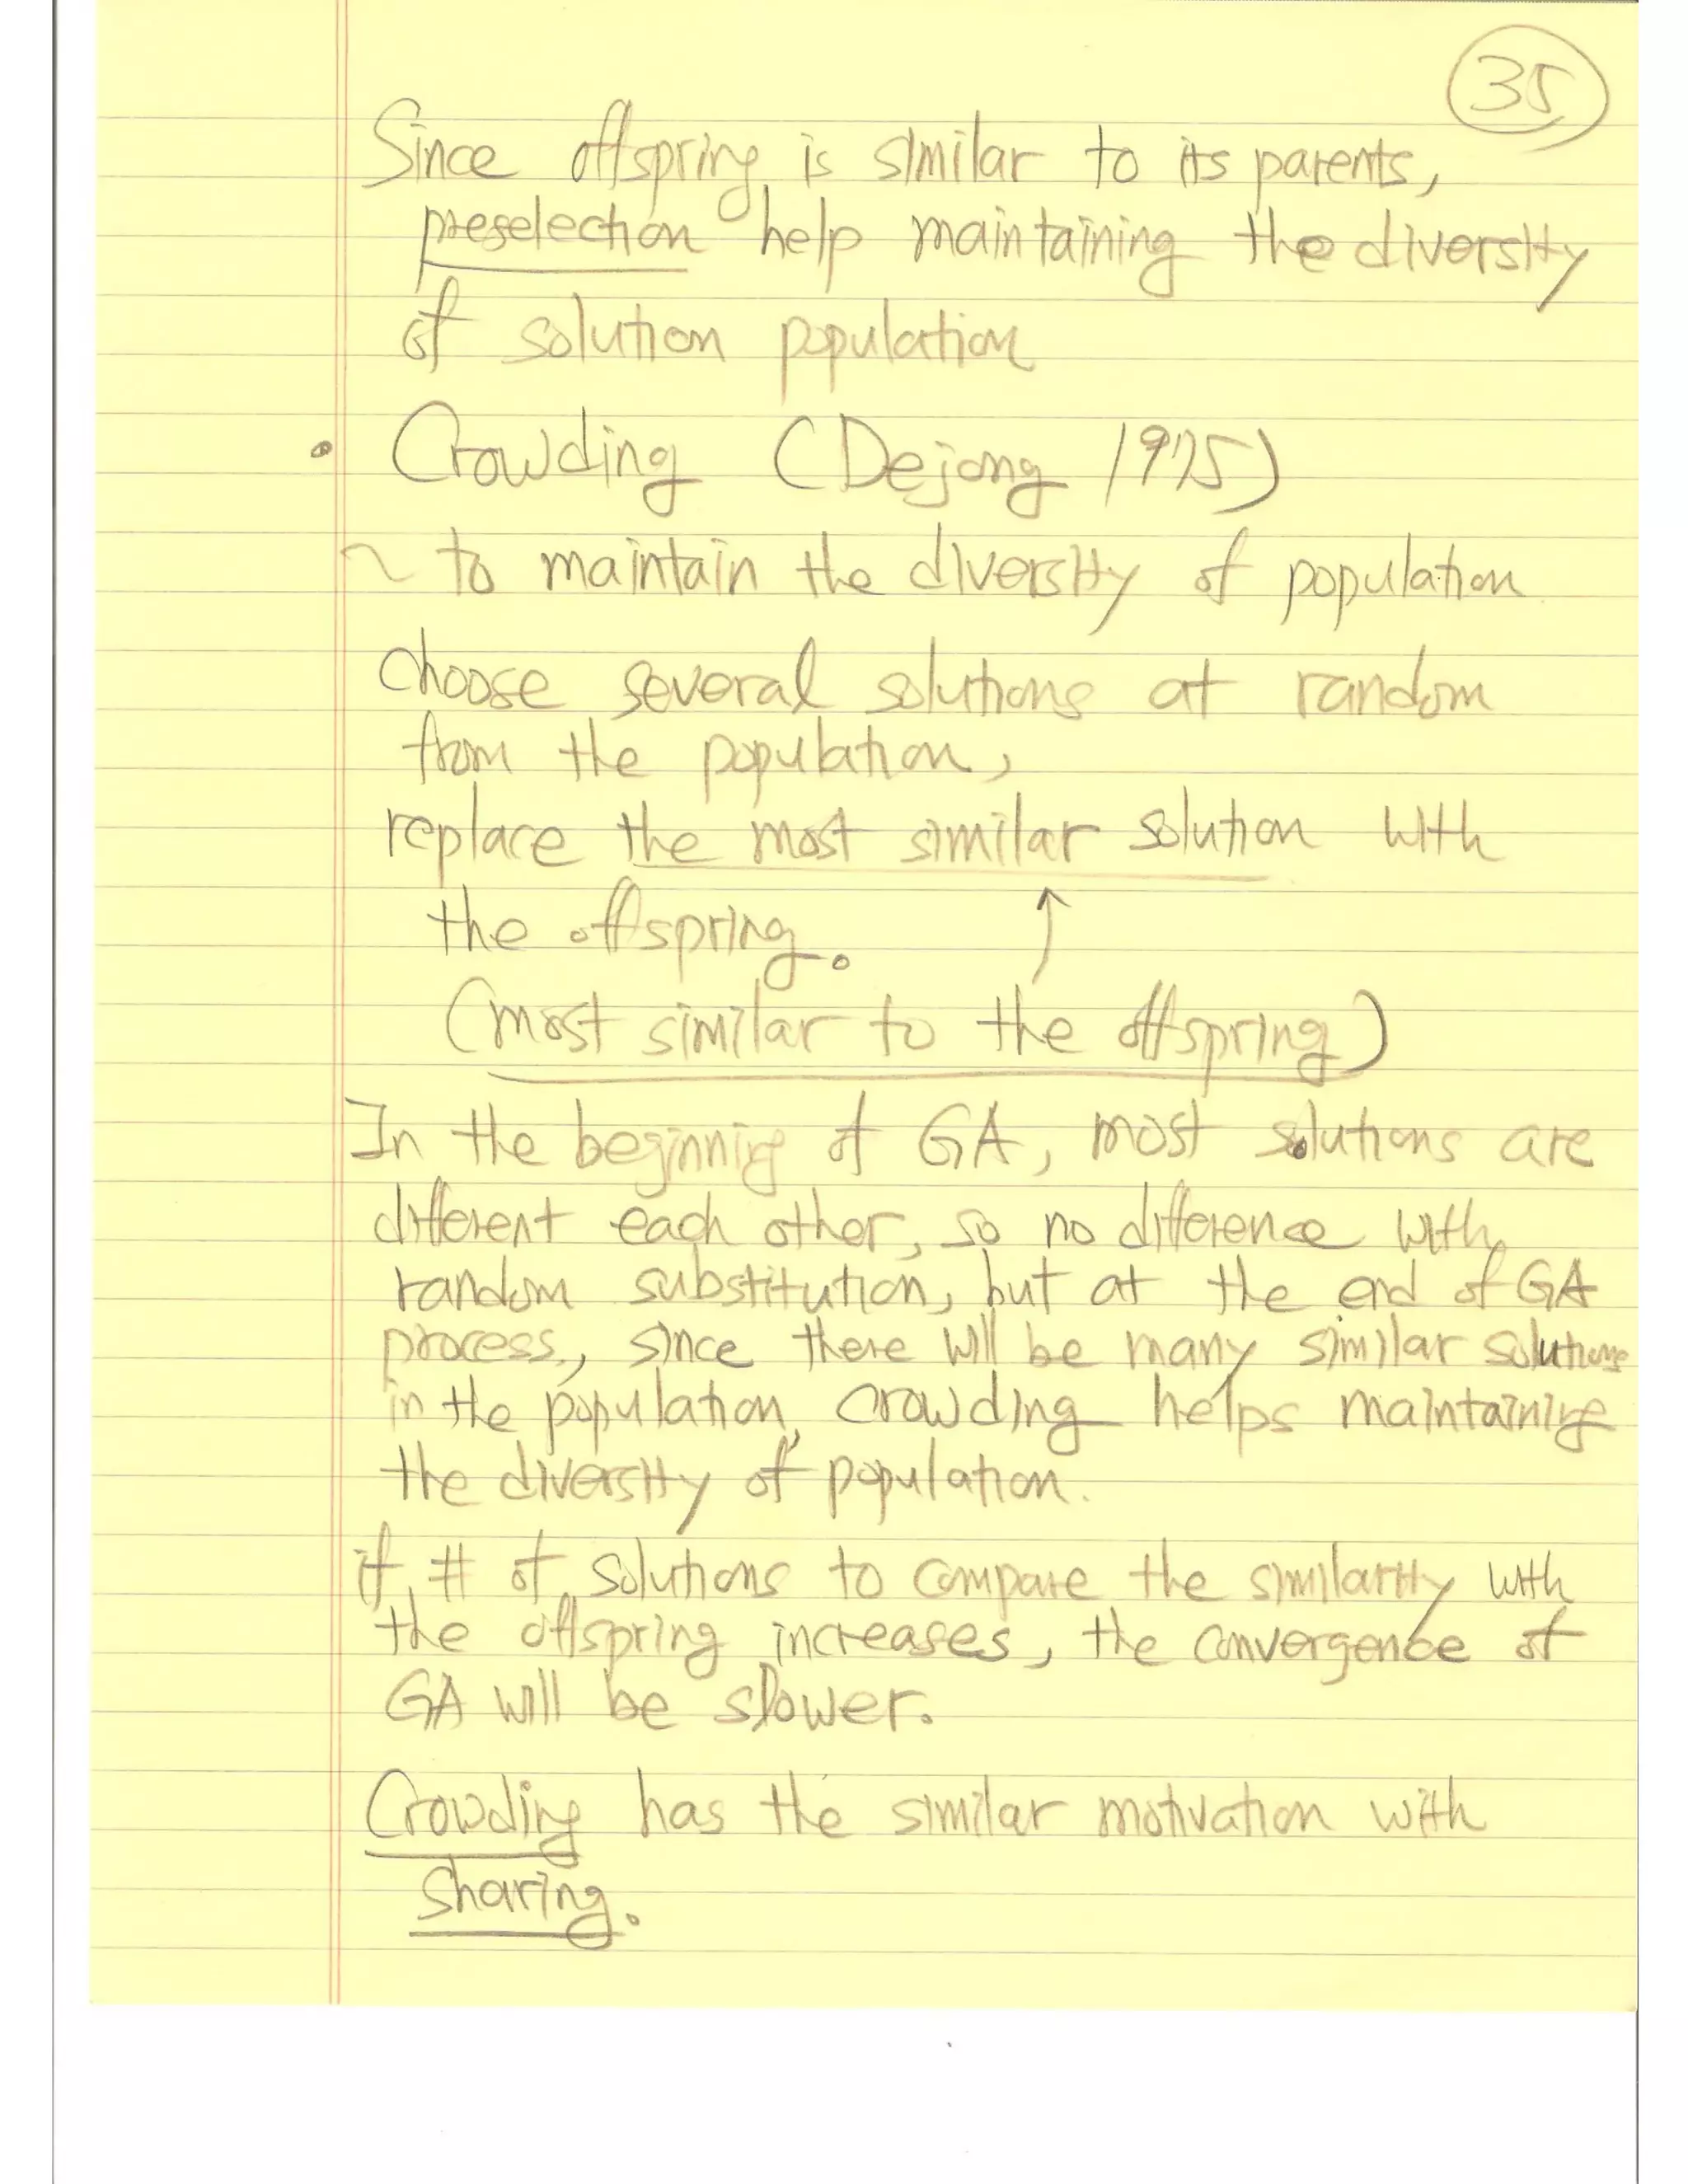 35
Since offspring is similar to its parents,
preselection help maintaining the diversity
of solution population
• Crowding (Dejong 1975)
~ to maintain the diversity of population
choose several solutions at random
from the population,
replace the most similar solution with
the offspring.
↑
(most similar to the offspring)
In the beginning of GA, most solutions are
different each other, so no difference with
random substitution, but at the end of GA
process, since there will be many similar solutions
in the population, crowding helps maintaining
the diversity of population.
if # of solutions to compare the similarity with
the offspring increases, the convergence of
GA will be slower.
Crowding has the similar motivation with
sharing.